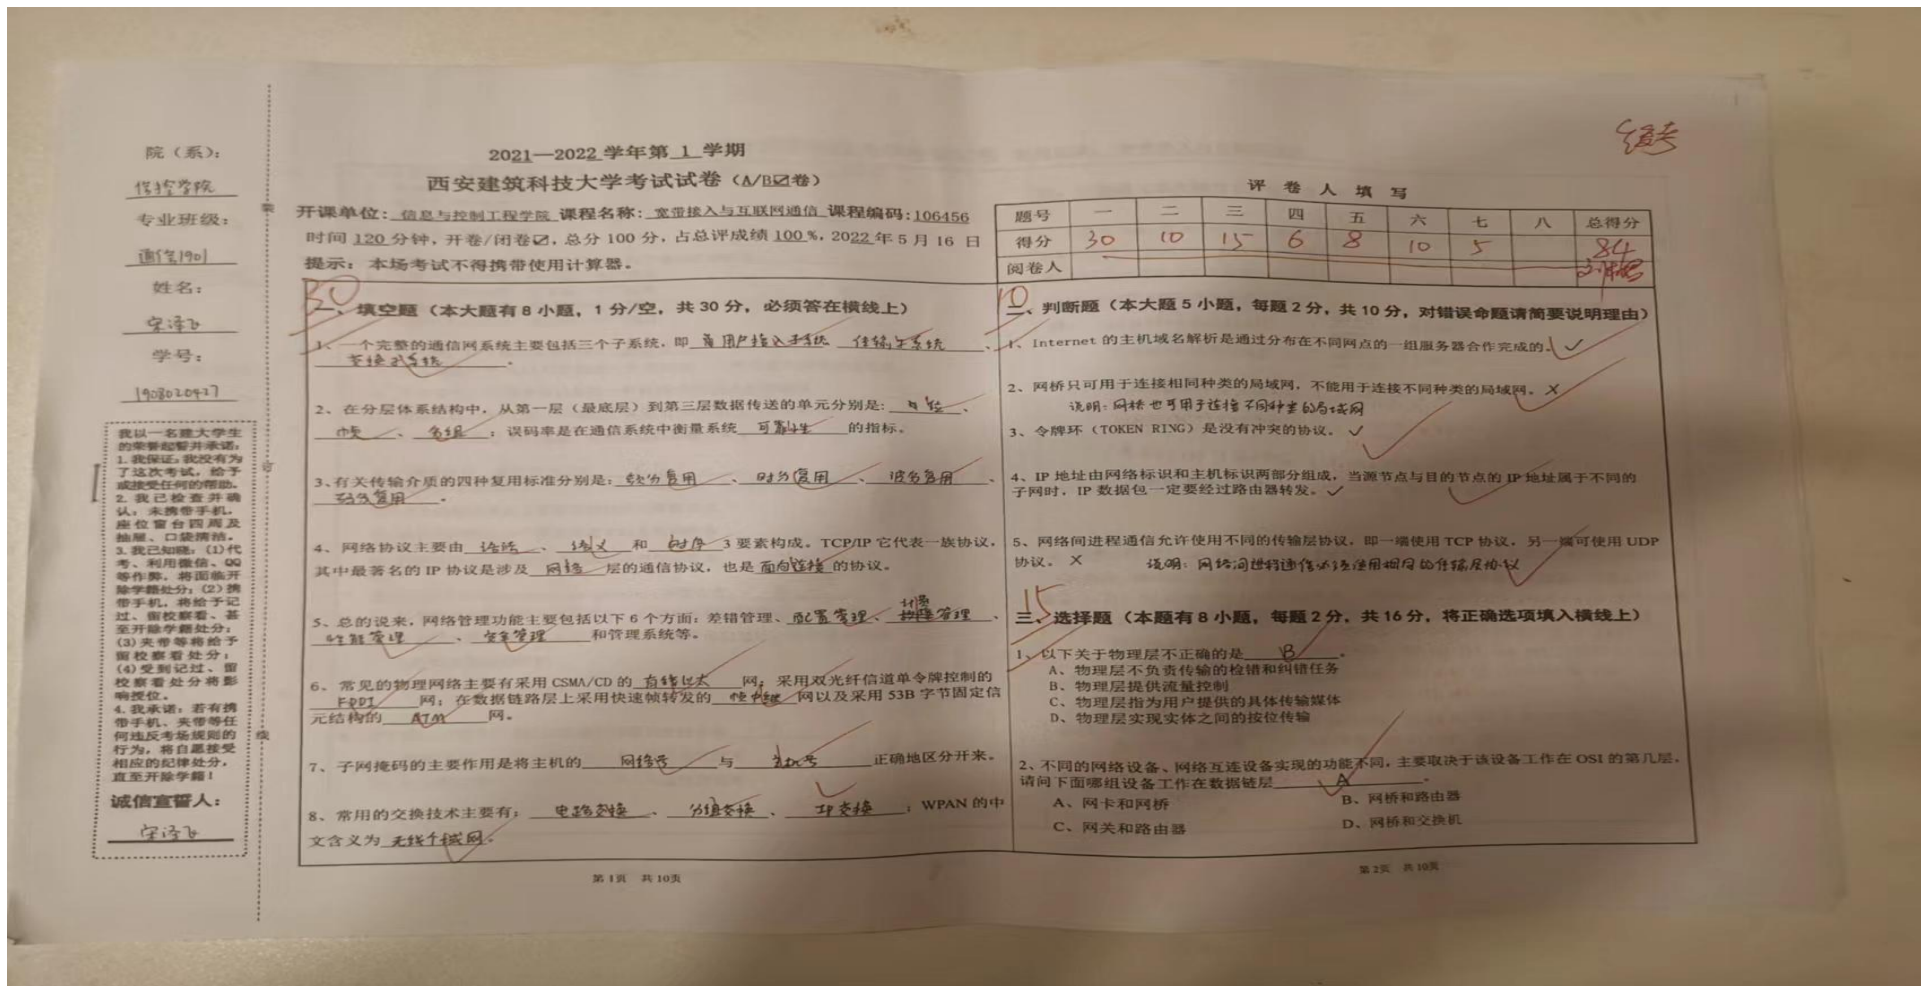 缓考
院（系）：
信控学院
专业班级：
通信1901
姓名：
宋泽飞
学号：
1908020427
装
订
线
我以一名建大学生
的荣誉起誓并承诺：
1.我保证：我没有为
了这次考试，给予
或接受任何的帮助。
2.我已检查并确
认：未携带手机，
座位窗台四周及
抽屉、口袋清洁。
3.我已知晓：(1)代
考、利用微信、QQ
等作弊，将面临开
除学籍处分；(2)携
带手机，将给予记
过、留校察看、甚
至开除学籍处分；
(3)夹带等将给予
留校察看处分；
(4)受到记过、留
校察看处分将影
响授位。
4.我承诺：若有携
带手机、夹带等任
何违反考场规则的
行为，将自愿接受
相应的纪律处分，
直至开除学籍！
诚信宣誓人：
宋泽飞
2021—2022 学年第 1 学期
西安建筑科技大学考试试卷（A/B☑卷）
开课单位：信息与控制工程学院 课程名称：宽带接入与互联网通信 课程编码：106456
时间 120 分钟，开卷/闭卷☑，总分 100 分，占总评成绩 100 %，2022 年 5 月 16 日
提示：本场考试不得携带使用计算器。
30
一、填空题（本大题有 8 小题，1 分/空，共 30 分，必须答在横线上）
1、一个完整的通信网系统主要包括三个子系统，即 用户接入子系统 传输子系统 、
交换子系统 。
2、在分层体系结构中，从第一层（最底层）到第三层数据传送的单元分别是： 位 、
帧 、 分组 ；误码率是在通信系统中衡量系统 可靠性 的指标。
3、有关传输介质的四种复用标准分别是：频分复用 、 时分复用 、 波分复用 、
码分复用 。
4、网络协议主要由 语法 、 语义 和 时序 3 要素构成。TCP/IP 它代表一族协议，
其中最著名的 IP 协议是涉及 网络 层的通信协议，也是 面向连接 的协议。
5、总的说来，网络管理功能主要包括以下 6 个方面：差错管理、配置管理、计费管理 、
性能管理 、 安全管理 和管理系统等。
6、常见的物理网络主要有采用 CSMA/CD 的 有线以太 网；采用双光纤信道单令牌控制的
FDDI 网；在数据链路层上采用快速帧转发的 帧中继 网以及采用 53B 字节固定信
元结构的 ATM 网。
7、子网掩码的主要作用是将主机的 网络号 与 主机号 正确地区分开来。
8、常用的交换技术主要有： 电路交换 、 分组交换 、 IP交换 ；WPAN 的中
文含义为 无线个域网 。
第 1页 共 10页
评 卷 人 填 写
题号 一 二 三 四 五 六 七 八 总得分
得分 30 10 15 6 8 10 5 84
阅卷人
10
二、判断题（本大题 5 小题，每题 2 分，共 10 分，对错误命题请简要说明理由）
1、Internet 的主机域名解析是通过分布在不同网点的一组服务器合作完成的。✓
2、网桥只可用于连接相同种类的局域网，不能用于连接不同种类的局域网。X
说明：网桥也可用于连接不同种类的局域网
3、令牌环（TOKEN RING）是没有冲突的协议。✓
4、IP 地址由网络标识和主机标识两部分组成，当源节点与目的节点的 IP 地址属于不同的
子网时，IP 数据包一定要经过路由器转发。✓
5、网络间进程通信允许使用不同的传输层协议，即一端使用 TCP 协议，另一端可使用 UDP
协议。X 说明：网络间进程通信必须使用相同的传输层协议
15
三、选择题（本题有 8 小题，每题 2 分，共 16 分，将正确选项填入横线上）
1、以下关于物理层不正确的是 B 。
A、物理层不负责传输的检错和纠错任务
B、物理层提供流量控制
C、物理层指为用户提供的具体传输媒体
D、物理层实现实体之间的按位传输
2、不同的网络设备、网络互连设备实现的功能不同，主要取决于该设备工作在 OSI 的第几层，
请问下面哪组设备工作在数据链层 A 。
A、网卡和网桥 B、网桥和路由器
C、网关和路由器 D、网桥和交换机
第 2页 共 10页